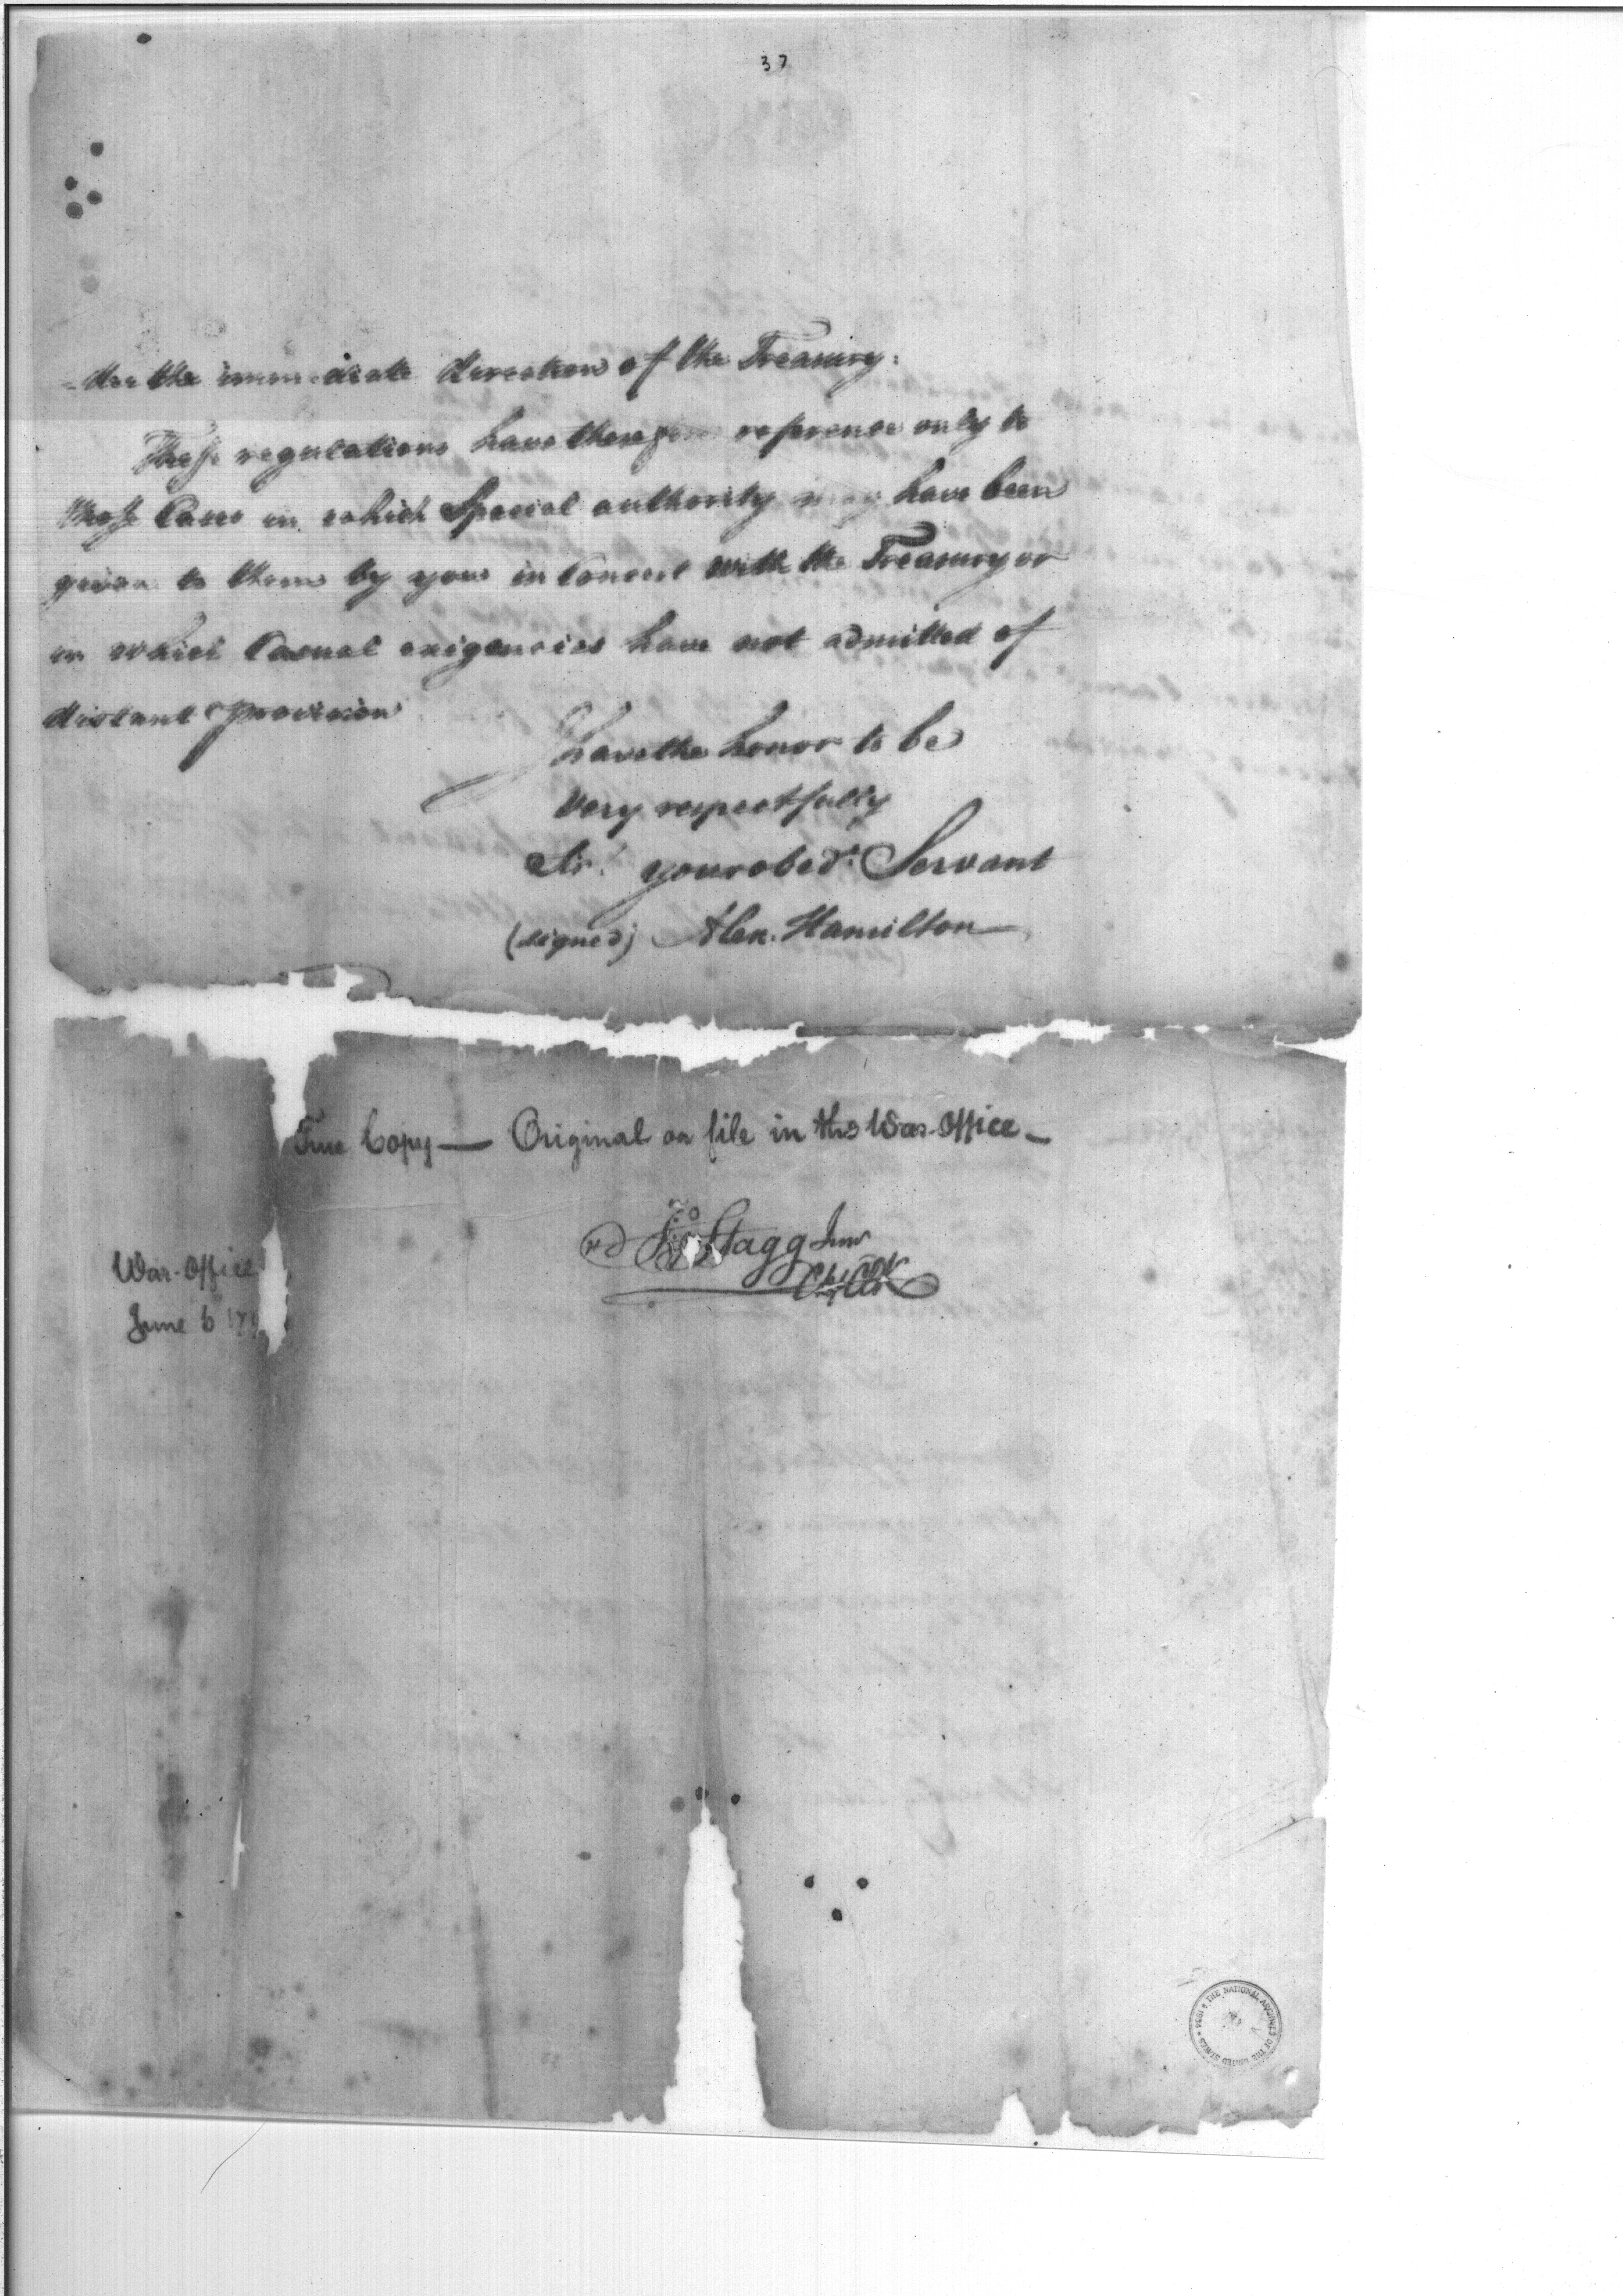 37
-der the immediate direction of the Treasury.
These regulations have therefore reference only to
those Cases in which Special authority may have been
given to them by you in Concert with the Treasury or
in which Casual exigencies have not admitted of
distant provision
I have the honor to be
Very respectfully
Sir. your obedt. Servant
(signed) Alex. Hamilton
True Copy — Original on file in the War-Office —
Jno Stagg Junr
Chf Clk
War-Office
June 6 179
THE NATIONAL ARCHIVES OF THE UNITED STATES 1934